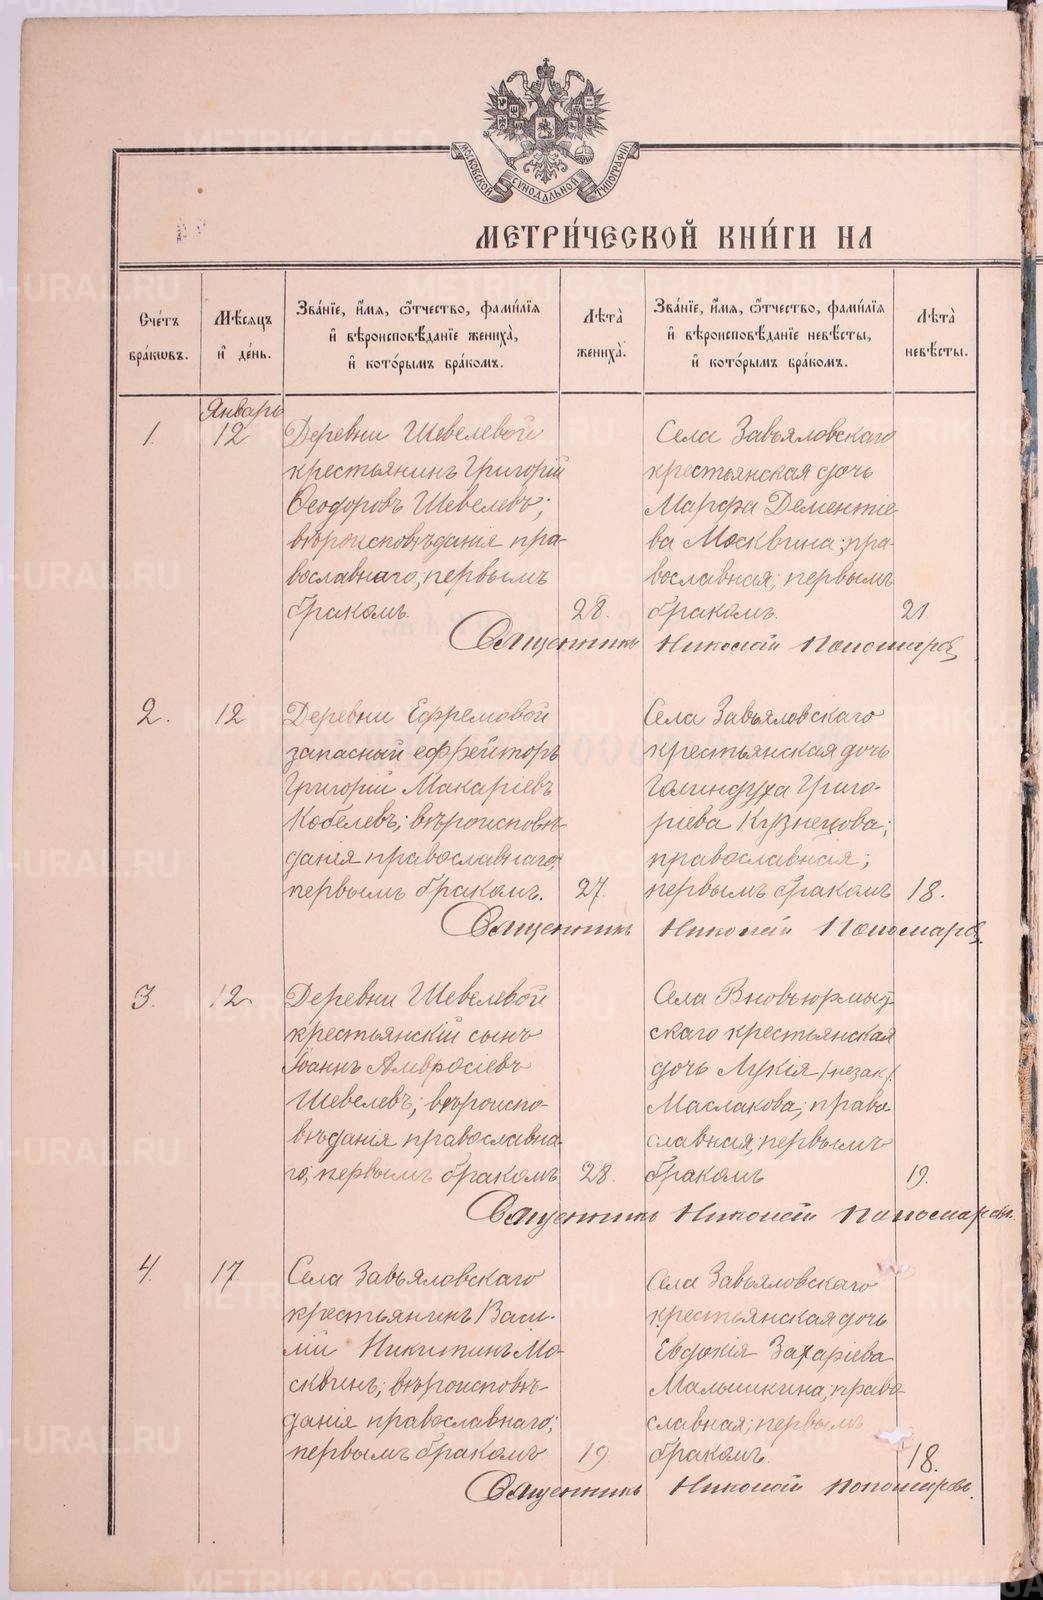 МОСКОВСКОЙ СѴНОДАЛЬНОЙ ТИПОГРАФІИ
МЕТРИ́ЧЕСКОЙ КНИ́ГИ НА
Сче́тъ бра́кѡвъ.
Мѣ́сяцъ и де́нь.
Зва́нїе, и҆́мѧ, ѻ҆́тчество, фами́лїѧ и҆ вѣроисповѣ́данїе жениха̀, и҆ кото́рымъ бра́комъ.
Лѣ́та жениха̀.
Зва́нїе, и҆́мѧ, ѻ҆́тчество, фами́лїѧ и҆ вѣроисповѣ́данїе невѣ́сты, и҆ кото́рымъ бра́комъ.
Лѣ́та невѣ́сты.
Январь
1.
12
Деревни Шевелевой
крестьянинъ Григорій
Ѳеодоровъ Шевелевъ;
вѣроисповѣданія пра-
вославнаго; первымъ
бракомъ.
28.
Села Завьяловскаго
крестьянская дочь
Марфа Дементіе-
ва Москвина; пра-
вославная; первымъ
бракомъ.
21.
Священникъ Николай Пономаревъ
2.
12
Деревни Ефремовой
запасный ефрейторъ
Григорій Макаріевъ
Кобелевъ; вѣроисповѣ-
данія православнаго;
первымъ бракомъ.
27.
Села Завьяловскаго
крестьянская дочь
Галиндуха Григо-
ріева Кузнецова;
православная;
первымъ бракомъ
18.
Священникъ Николай Пономаревъ.
3.
12
Деревни Шевелевой
крестьянскій сынъ
Іоаннъ Амвросіевъ
Шевелевъ; вѣроиспо-
вѣданія православна-
го; первымъ бракомъ
28.
Села Вновьюрмыт-
скаго крестьянская
дочь Лукія /незак/.
Маслакова; право-
славная; первымъ
бракомъ
19.
Священникъ Николай Пономаревъ.
4.
17
Села Завьяловскаго
крестьянинъ Васи-
лій Никитинъ Мо-
сквинъ; вѣроисповѣ-
данія православнаго;
первымъ бракомъ
19.
Села Завьяловскаго
крестьянская дочь
Евдокія Захаріева
Малышкина; право-
славная; первымъ
бракомъ.
18.
Священникъ Николай Пономаревъ.
METRIKI.GASO-URAL.RU